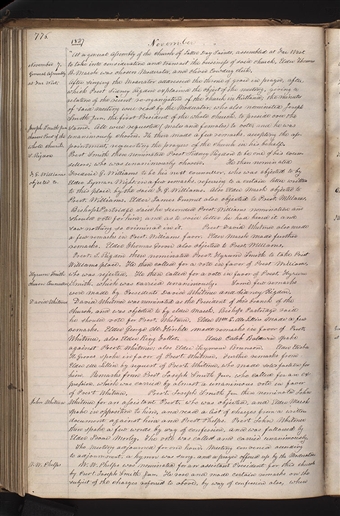 775
1837
November
November 7. "At a general assembly of the Church of Latter Day Saints, assembled at Far West
General Assembly to take into consideration and transact the business of said church, Elder Thomas
at Far West B. Marsh was chosen Moderator, and Oliver Cowdery clerk.
After singing the Moderator addressed the throne of grace in prayer, after
which Prest Sidney Rigdon explained the object of the meeting, giving a
relation of the recent re-organization of the Church in Kirtland, the minutes
of said meeting were read by the Moderator who also nominated Joseph
Smith Jun. the first President of the whole church, to preside over the
Joseph Smith Jun same. All were requested (males and females) to vote, and he was
chosen unanimously chosen. He then made a few remarks, accepting the ap-
whole church pointment, requesting the prayers of the church in his behalf.
S. Rigdon Prest Smith then nominated Prest Sidney Rigdon to be one of his coun-
sellors, who was unanimously chosen. He then nominated
F. G. Williams Frederick G. Williams to be his next counsellor, who was objected to by
objected to. Elder Lyman Wight in a few remarks referring to a certain letter written
to this place by the said F. G. Williams. Also Elder Marsh objected to
Prest Williams. Elder James Emmet also objected to Prest Williams.
Bishop E. Partridge said he seconded Prest Williams' nomination and
should vote for him; and as to said letter he had heard it and
saw nothing so criminal in it. Prest David Whitmer also made
a few remarks in Prest Williams' favor. Elder Marsh made further
remarks. Elder Thomas Grover also objected to Prest Williams.
Prest S. Rigdon then nominated Prest Hyrum Smith to take Prest
Williams' place. He then called for a vote in favor of Prest Williams,
Hyrum Smith who was rejected. He then called for a vote in favor of Prest Hyrum
chosen Counsellor Smith, which was carried unanimously. Some few remarks
were made by Presidents David Whitmer and Sidney Rigdon.
David Whitmer David Whitmer was nominated as the President of this branch of the
Church, and was objected to by Elder Marsh. Bishop Partridge said
he should vote for Prest Whitmer. Elder Wm. E. McLelin made a few
remarks. Elder George M. Hinkle made remarks in favor of Prest
Whitmer, also Elder Caleb Baldwin spoke
against Prest Whitmer, also Elder Lyman
spoke in favor of Prest Whitmer, further remarks from
Elder McLelin by request of Prest Whitmer, who made satisfaction for
him. Remarks from Prest Joseph Smith Jun, who called for an ex-
pression, which was carried by almost a unanimous vote in favor
of Prest Whitmer. Prest Joseph Smith Jun then nominated John
John Whitmer Whitmer for an assistant Prest, who was objected, and Elder Marsh
spoke in opposition to him, and read a list of charges from a written
document against him and Prest Phelps. Prest John Whitmer
then spoke a few words by way of confession, and was followed by
Elder Isaac Morley. The vote was called and carried unanimously.
The meeting adjourned for one hour. Meeting convened according
to adjournment, a hymn was sung, and a prayer offered up by the Moderator.
W. W. Phelps W. W. Phelps was nominated for an assistant President for this church
by Prest Joseph Smith Jun. He rose and made certain remarks on the
subject of the charges referred to above, by way of confession also, when